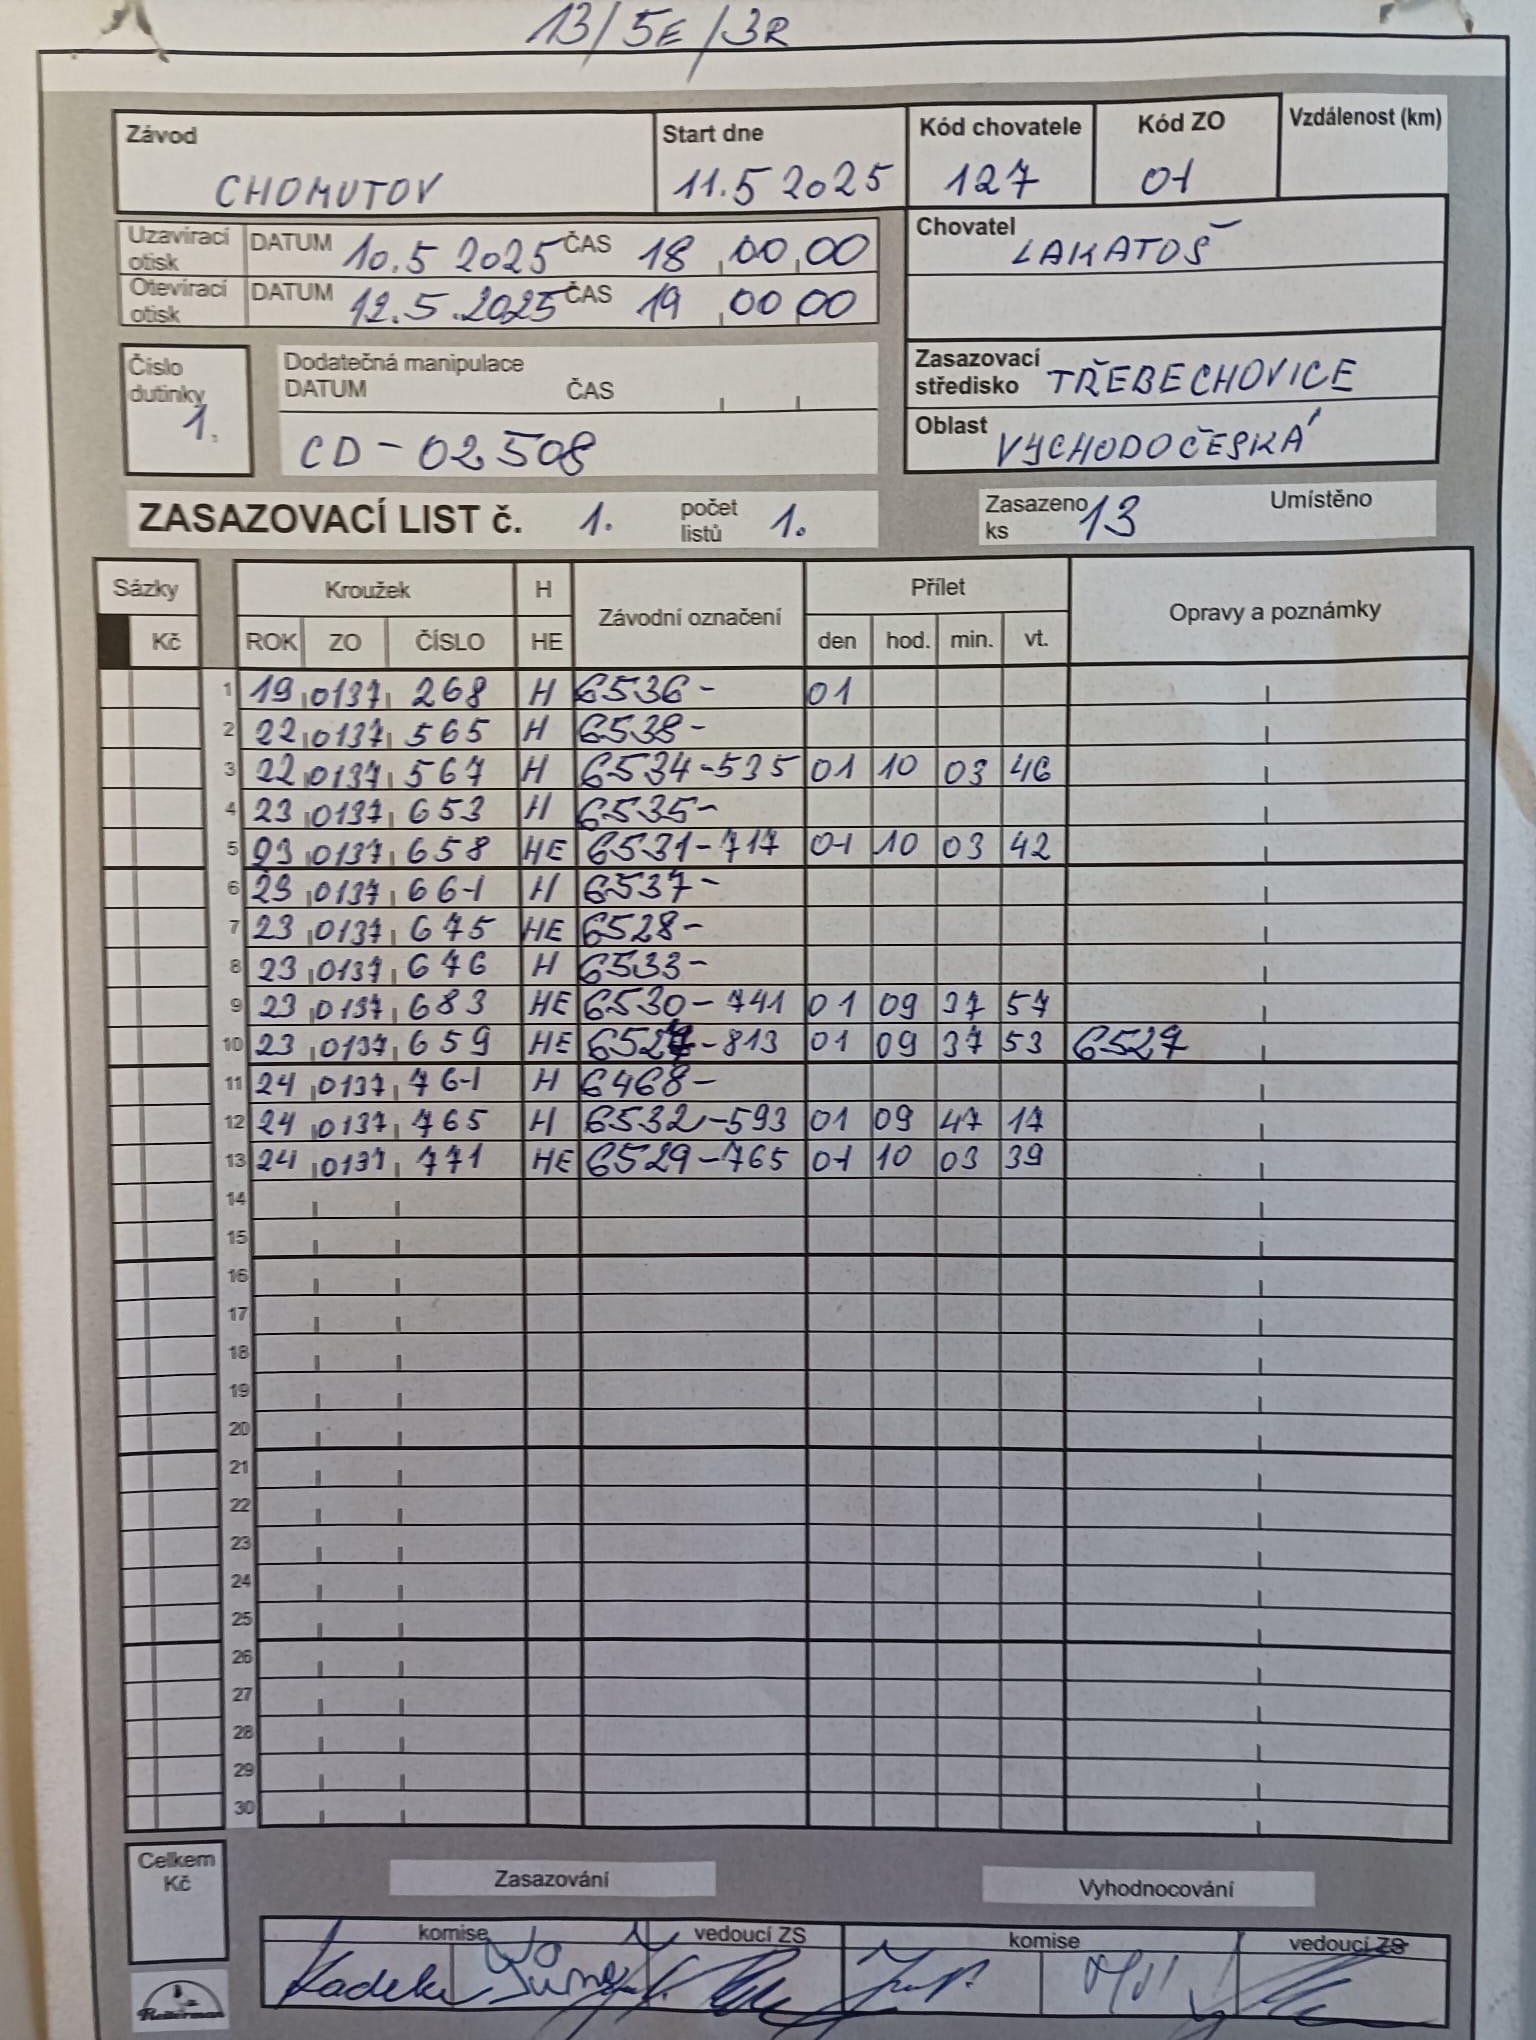 13/5E/3R
Závod Start dne Kód chovatele Kód ZO Vzdálenost (km)
CHOMUTOV 11.5 2025 127 01
Uzavírací otisk DATUM 10.5 2025 ČAS 18 00 00
Otevírací otisk DATUM 12.5.2025 ČAS 19 00 00
Chovatel LAKATOŠ
Číslo dutinky 1.
Dodatečná manipulace
DATUM ČAS
CD-02508
Zasazovací středisko TŘEBECHOVICE
Oblast VÝCHODOČESKÁ
ZASAZOVACÍ LIST č. 1. počet listů 1. Zasazeno ks 13 Umístěno
Sázky Kroužek H Závodní označení Přílet Opravy a poznámky
Kč ROK ZO ČÍSLO HE den hod. min. vt.
1 19 0137 268 H 6536- 01
2 22 0137 565 H 6538-
3 22 0137 567 H 6534-535 01 10 03 46
4 23 0137 653 H 6535-
5 23 0137 658 HE 6531-717 01 10 03 42
6 23 0137 661 H 6537-
7 23 0137 675 HE 6528-
8 23 0137 676 H 6533-
9 23 0137 683 HE 6530-741 01 09 37 57
10 23 0137 659 HE 6527-813 01 09 37 53 6527
11 24 0137 761 H 6468-
12 24 0137 765 H 6532-593 01 09 47 17
13 24 0137 771 HE 6529-765 01 10 03 39
14
15
16
17
18
19
20
21
22
23
24
25
26
27
28
29
30
Celkem Kč
Zasazování Vyhodnocování
komise vedoucí ZS komise vedoucí ZS
Reiterman